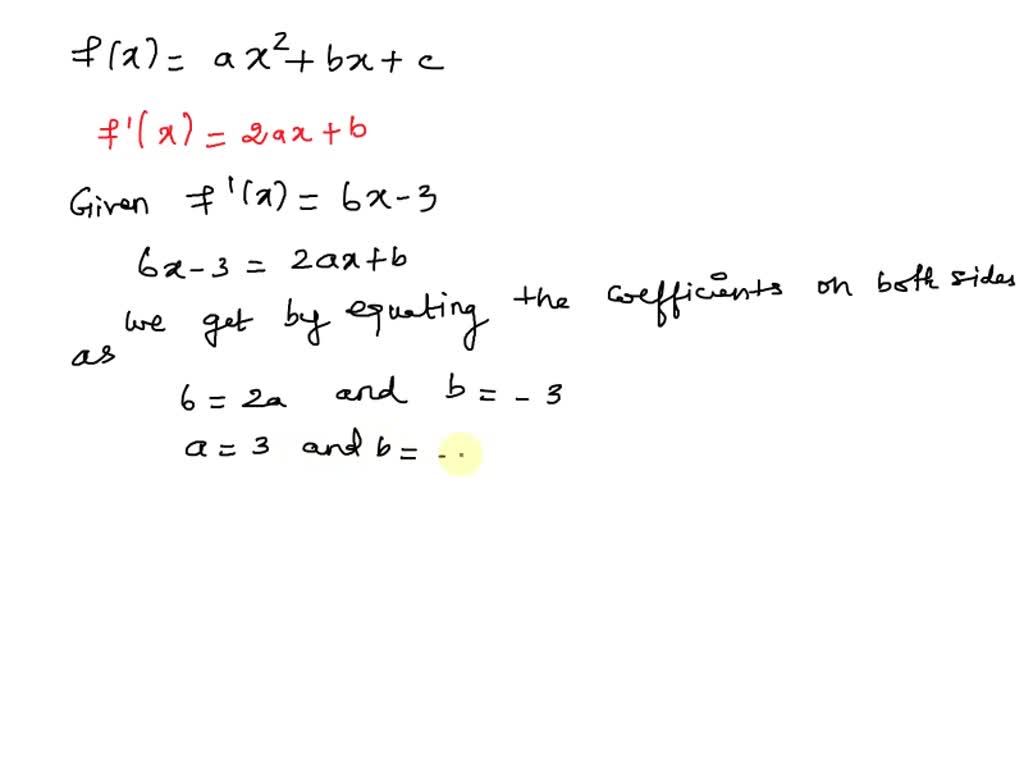 f(x) = ax²+bx+c
f'(x) = 2ax+b
Given f'(x) = 6x-3
6x-3 = 2ax+b
we get by equating the coefficients on both sides
as
6 = 2a and b = -3
a = 3 and b = -